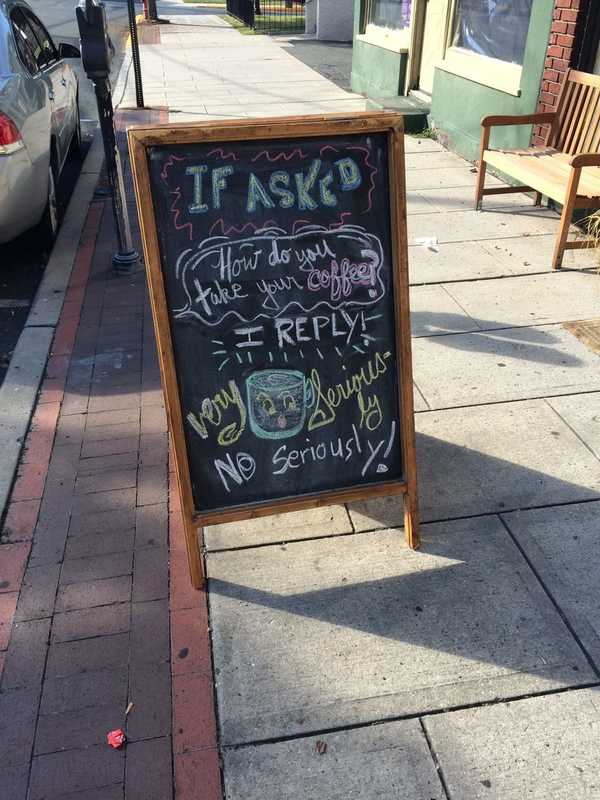 IF ASKED
How do you
take your coffee?
I REPLY!
very Serious-
ly
NO Seriously!